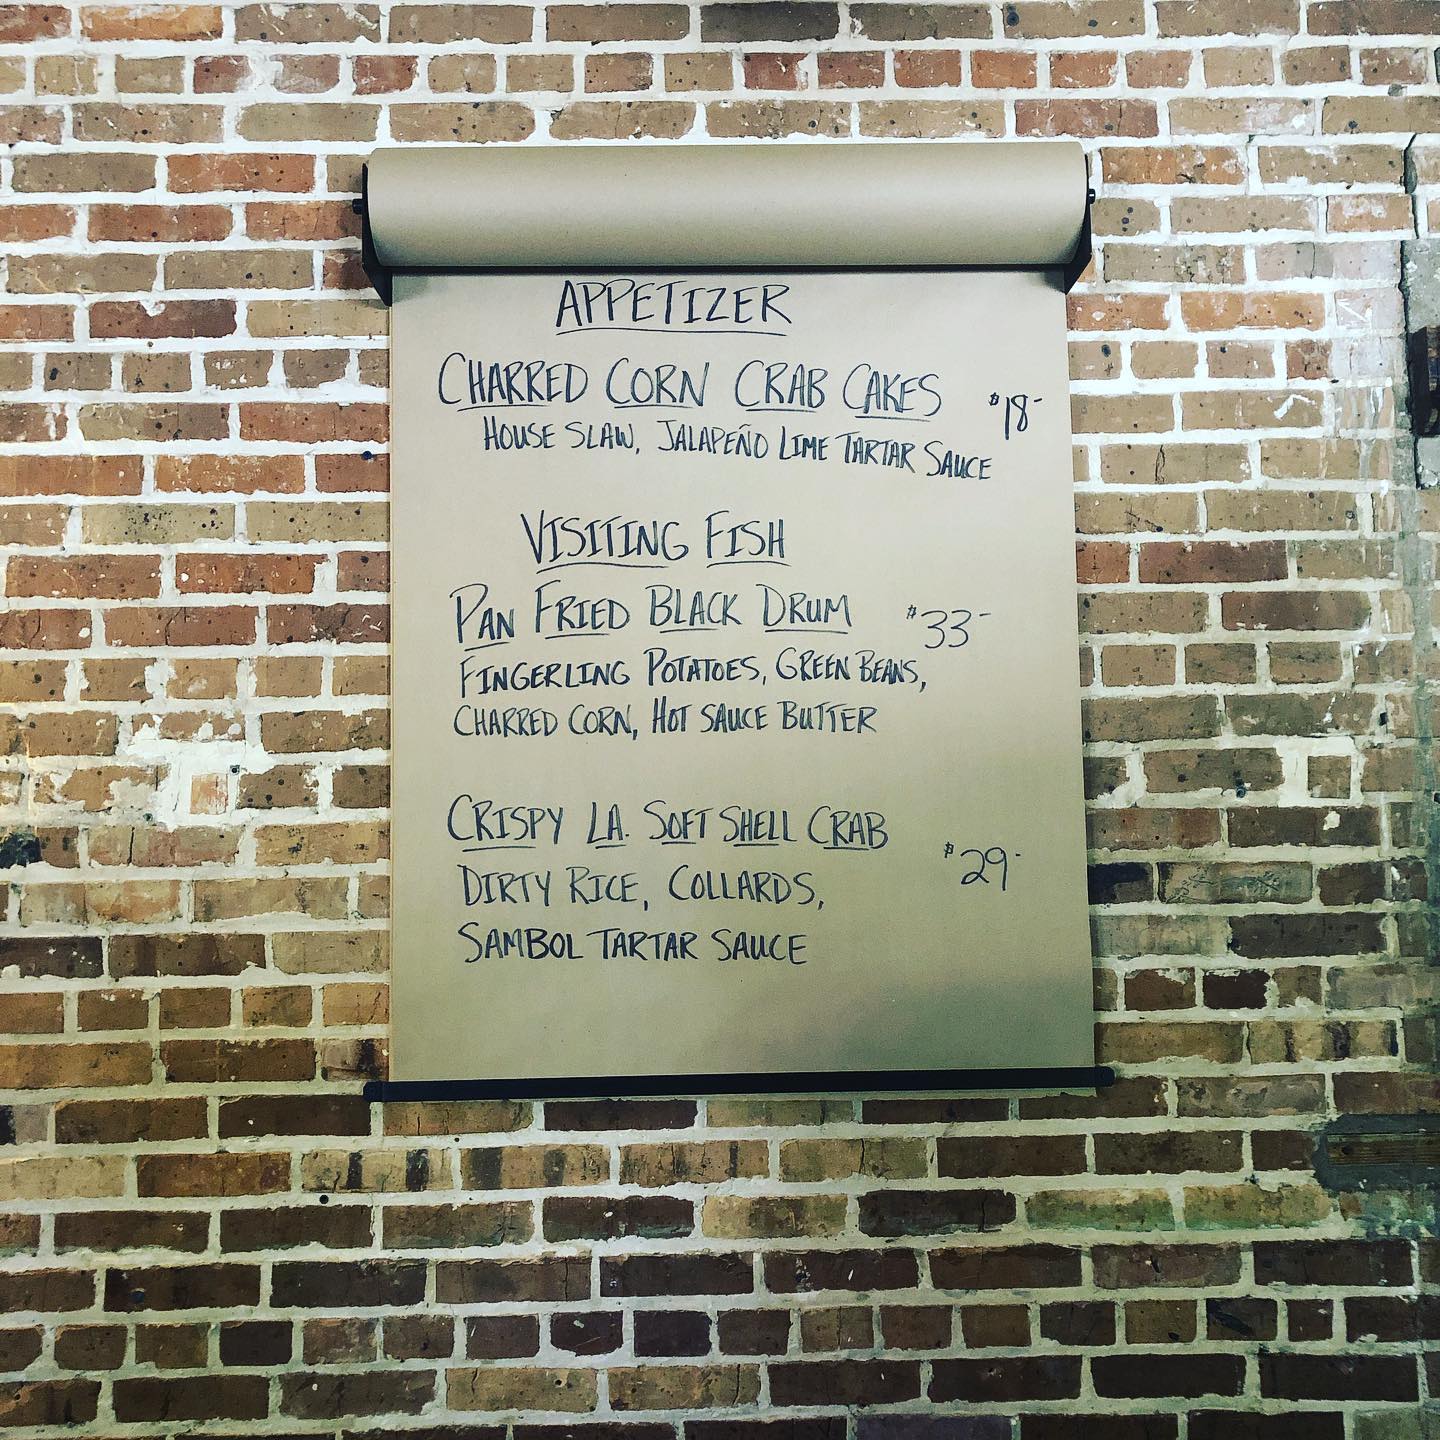 APPETIZER
CHARRED CORN CRAB CAKES $18-
HOUSE SLAW, JALAPEÑO LIME TARTAR SAUCE
VISITING FISH
PAN FRIED BLACK DRUM $33-
FINGERLING POTATOES, GREEN BEANS,
CHARRED CORN, HOT SAUCE BUTTER
CRISPY LA. SOFT SHELL CRAB $29-
DIRTY RICE, COLLARDS,
SAMBOL TARTAR SAUCE